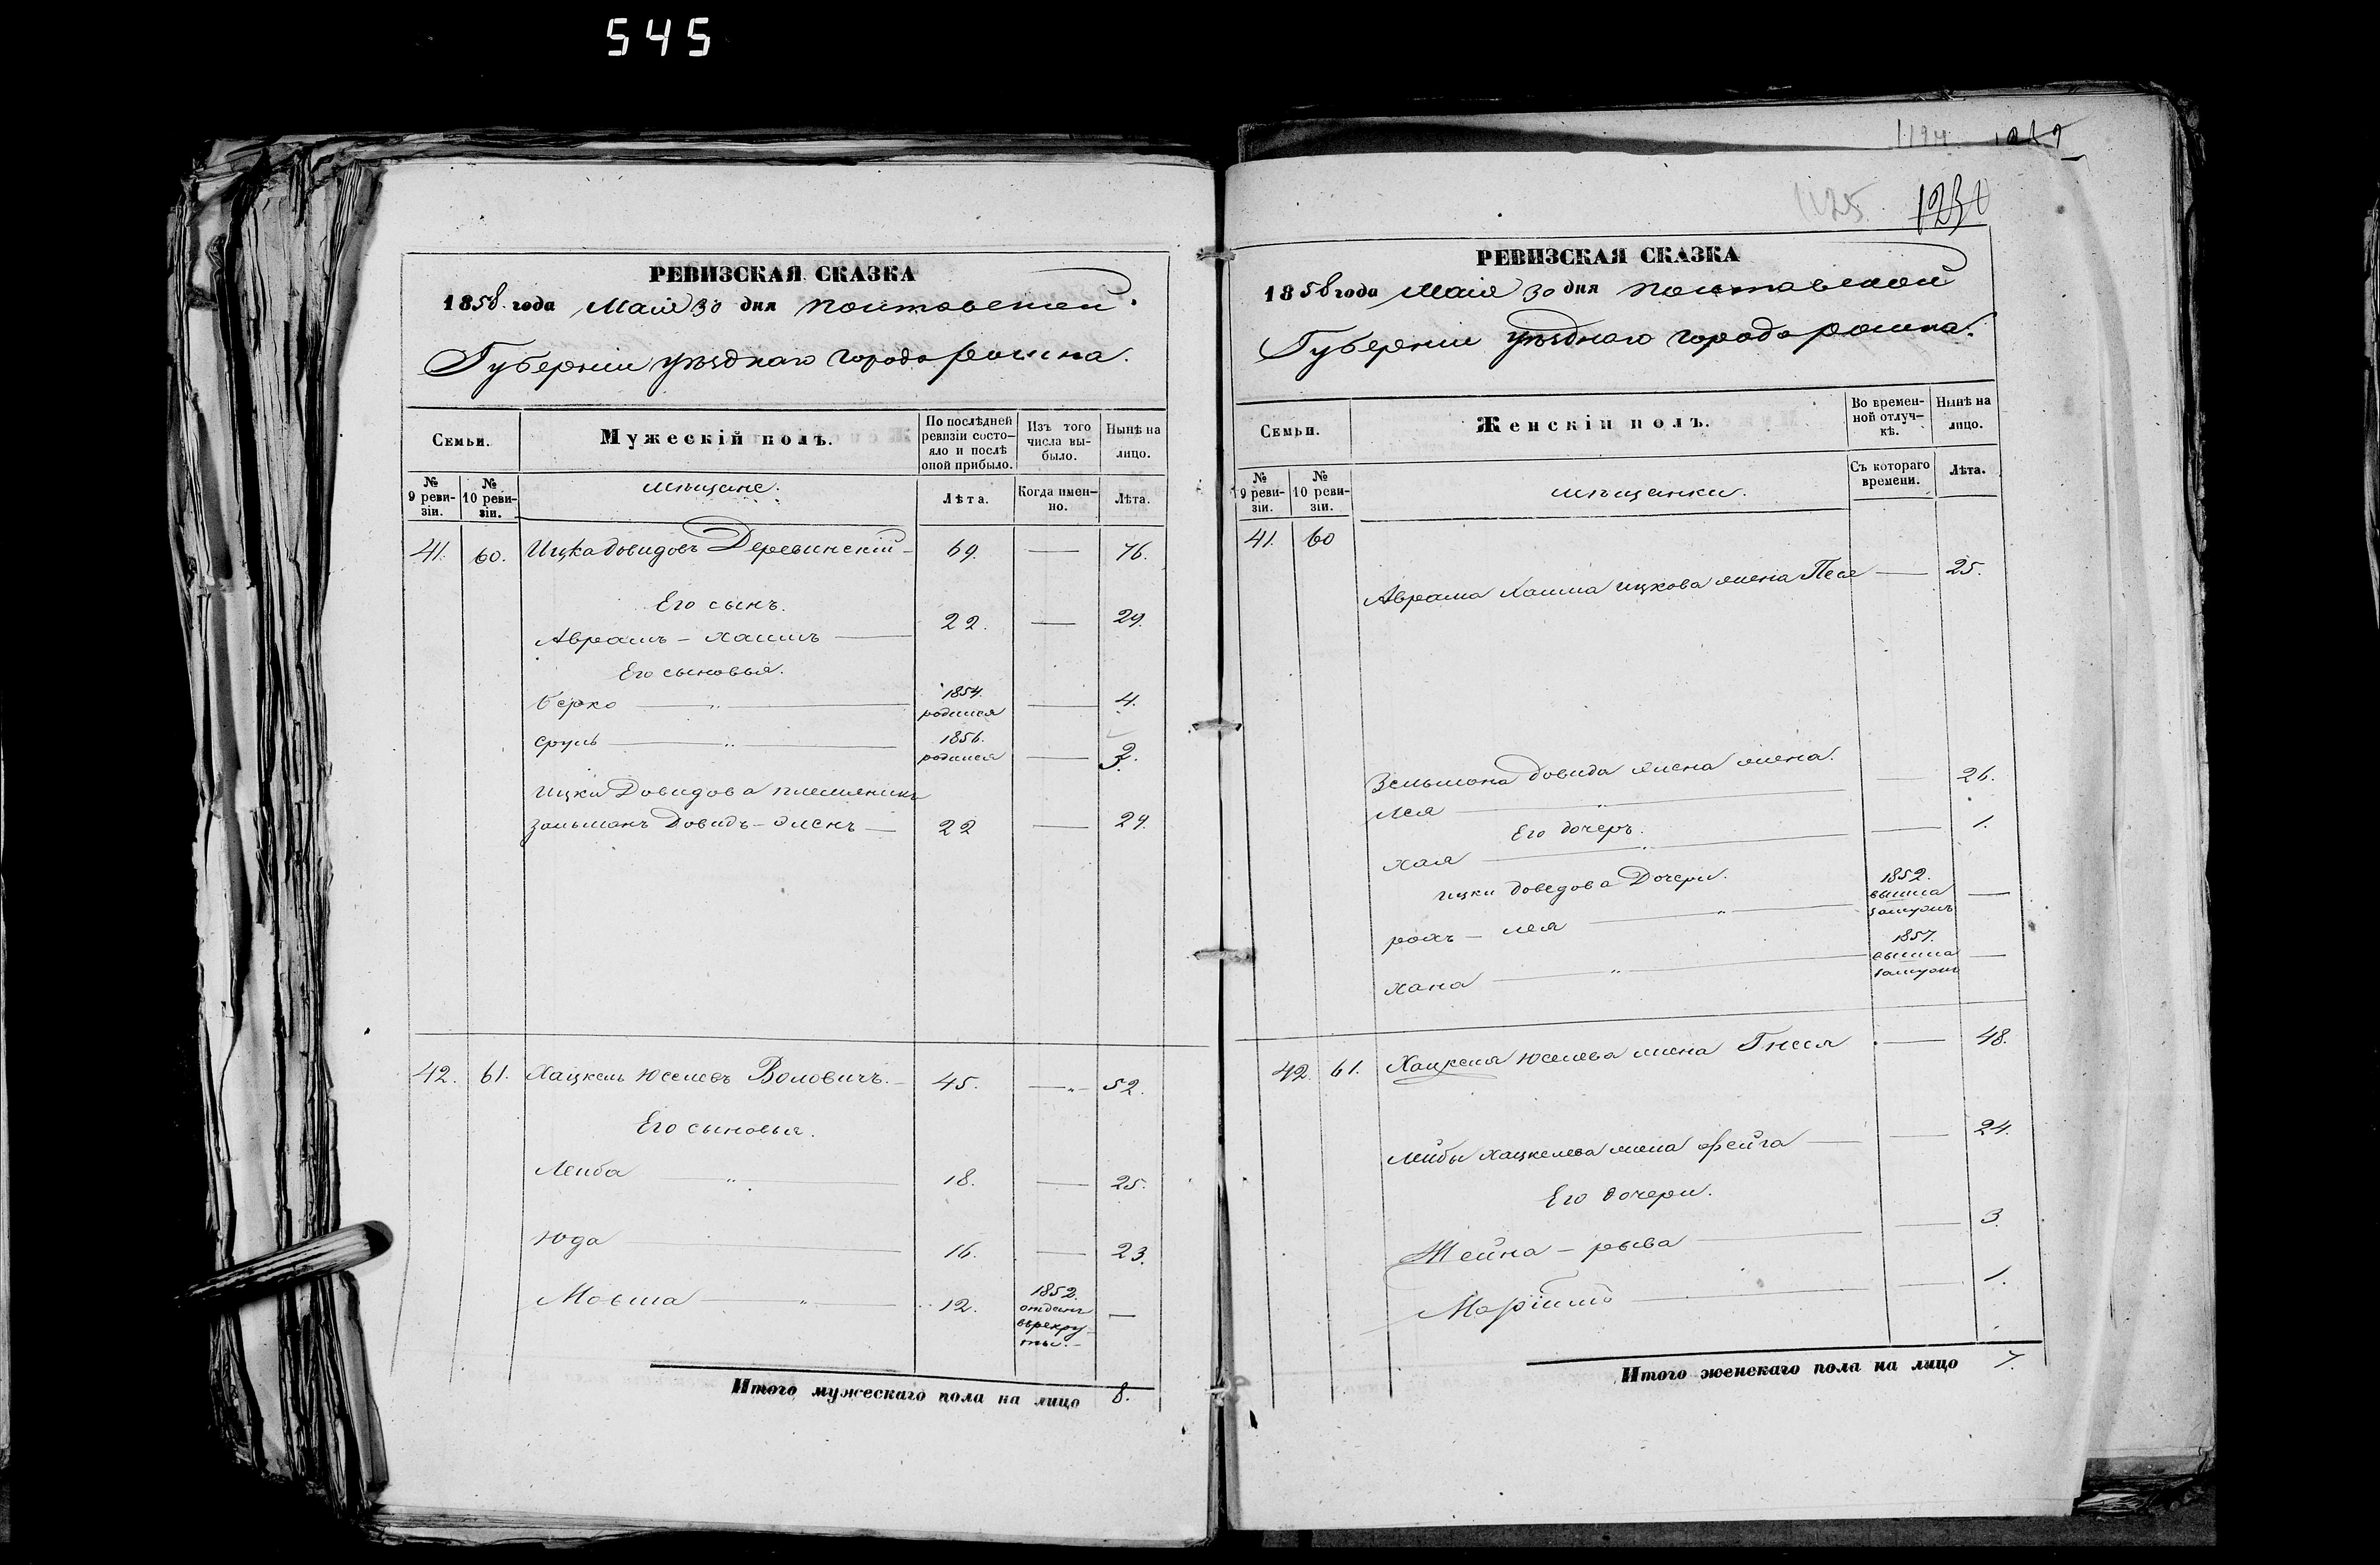 545
РЕВИЗСКАЯ СКАЗКА
1858 года Маія 30 дня Полтавской
Губерніи уѣзднаго города Ромна.
Семьи.
Мужескій полъ.
По послѣдней ревизіи состояло и послѣ оной прибыло.
Изъ того числа выбыло.
Нынѣ на лицо.
№ 9 ревизіи.
№ 10 ревизіи.
мѣщане.
Лѣта.
Когда именно.
Лѣта.
41. 60. Ицка Довидовъ Деревинскій 69. — 76.
Его сынъ.
Аврамъ - Хаимъ — 22. — 29.
Его сыновья.
Берко — 1854. родился — 4.
Сруль — 1856. родился — 2.
Ицки Довидова племяникъ
Зальманъ Довидъ — 22 — 29.
42. 61. Хацкель Юселевъ Воловичъ. 45. — 52.
Его сыновья.
Лейба — 18. — 25.
Юда — 16. — 23.
Мовша — 12. 1852. отданъ въ рекруты. —
Итого мужескаго пола на лицо 8.
1194
1125. 1230
РЕВИЗСКАЯ СКАЗКА
1858 года Маія 30 дня Полтавской
Губерніи уѣзднаго города Ромна.
Семьи.
Женскій полъ.
Во временной отлучкѣ.
Нынѣ на лицо.
№ 9 ревизіи.
№ 10 ревизіи.
мѣщанки.
Съ котораго времени.
Лѣта.
41. 60
Аврама Хаима Ицкова жена Песя — 25.
Зельмана Довида жена.
Лея — 26.
Его дочерь.
Хая — 1.
Ицки Доведова Дочери.
Рохъ - Лея — 1852. вышла замужъ —
Хана — 1857. вышла замужъ —
42. 61. Хацкеля Юселева жена Гнеся — 48.
Лейбы Хацкелева жена Фейга — 24.
Его дочери.
Шейна - Рыва — 3.
— 1.
Итого женскаго пола на лицо 7.